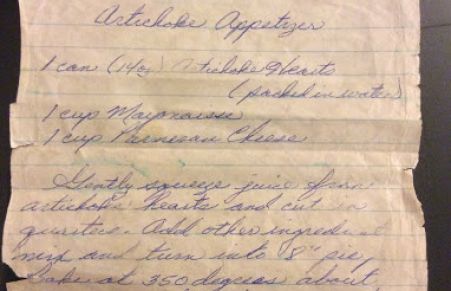 Artichoke Appetizer
1 can (14oz) Artichoke Hearts
(packed in water)
1 cup Mayonaisse
1 cup Parmesan Cheese
Gently squeeze juice from
artichoke hearts and cut in
quarters. Add other ingredient
mix and turn into 8" pie,
Bake at 350 degrees about